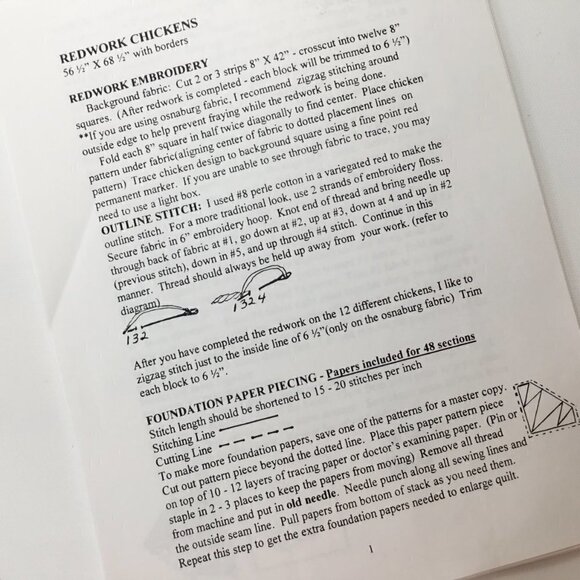 REDWORK CHICKENS
56 ½" X 68 ½" with borders
REDWORK EMBROIDERY
Background fabric: Cut 2 or 3 strips 8" X 42" - crosscut into twelve 8"
squares. (After redwork is completed - each block will be trimmed to 6 ½")
**If you are using osnaburg fabric, I recommend zigzag stitching around
outside edge to help prevent fraying while the redwork is being done.
Fold each 8" square in half twice diagonally to find center. Place chicken
pattern under fabric(aligning center of fabric to dotted placement lines on
pattern) Trace chicken design to background square using a fine point red
permanent marker. If you are unable to see through fabric to trace, you may
need to use a light box.
OUTLINE STITCH: I used #8 perle cotton in a variegated red to make the
outline stitch. For a more traditional look, use 2 strands of embroidery floss.
Secure fabric in 6" embroidery hoop. Knot end of thread and bring needle up
through back of fabric at #1, go down at #2, up at #3, down at 4 and up in #2
(previous stitch), down in #5, and up through #4 stitch. Continue in this
manner. Thread should always be held up away from your work. (refer to
diagram)
132
1324
After you have completed the redwork on the 12 different chickens, I like to
zigzag stitch just to the inside line of 6 ½"(only on the osnaburg fabric) Trim
each block to 6 ½".
FOUNDATION PAPER PIECING - Papers included for 48 sections
Stitch length should be shortened to 15 - 20 stitches per inch
Stitching Line
Cutting Line
To make more foundation papers, save one of the patterns for a master copy.
Cut out pattern piece beyond the dotted line. Place this paper pattern piece
on top of 10 - 12 layers of tracing paper or doctor's examining paper. (Pin or
staple in 2 - 3 places to keep the papers from moving) Remove all thread
from machine and put in old needle. Needle punch along all sewing lines and
the outside seam line. Pull papers from bottom of stack as you need them.
Repeat this step to get the extra foundation papers needed to enlarge quilt.
1